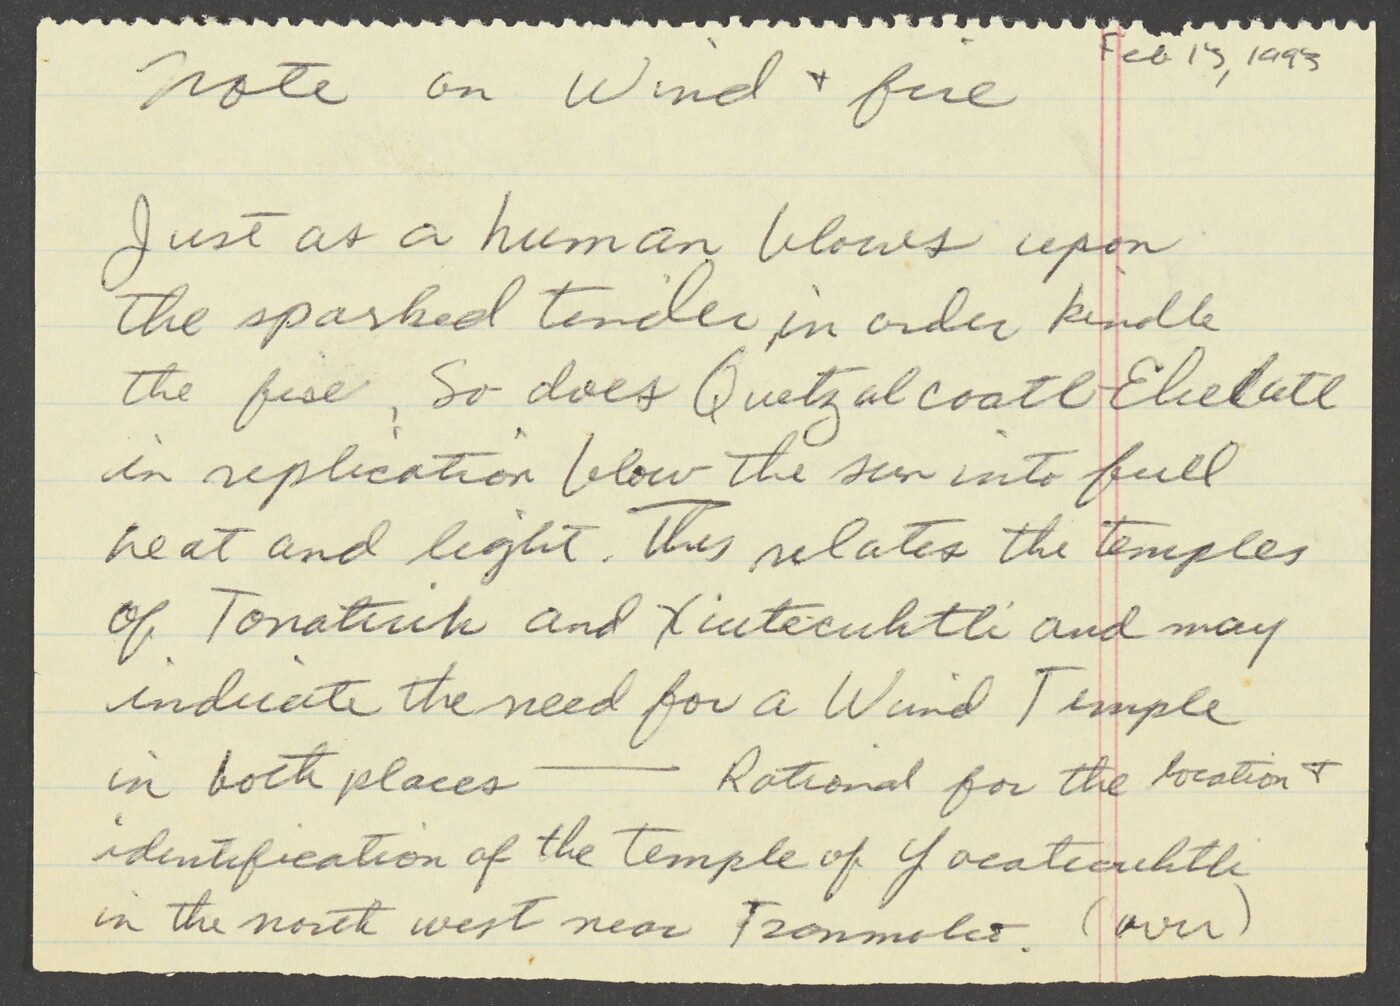 Feb 13, 1993
Note on Wind + fire
Just as a human blows upon
the sparked tender, in order kindle
the fire, So does Quetzalcoatl-Ehecatl
in replication blow the sun into full
heat and light. This relates the temples
of Tonatiuh and Xiutecuhtli and may
indicate the need for a Wind Temple
in both places —— Rational for the location +
identification of the temple of Yacatecuhtli
in the north west near Tzonmolco. (over)